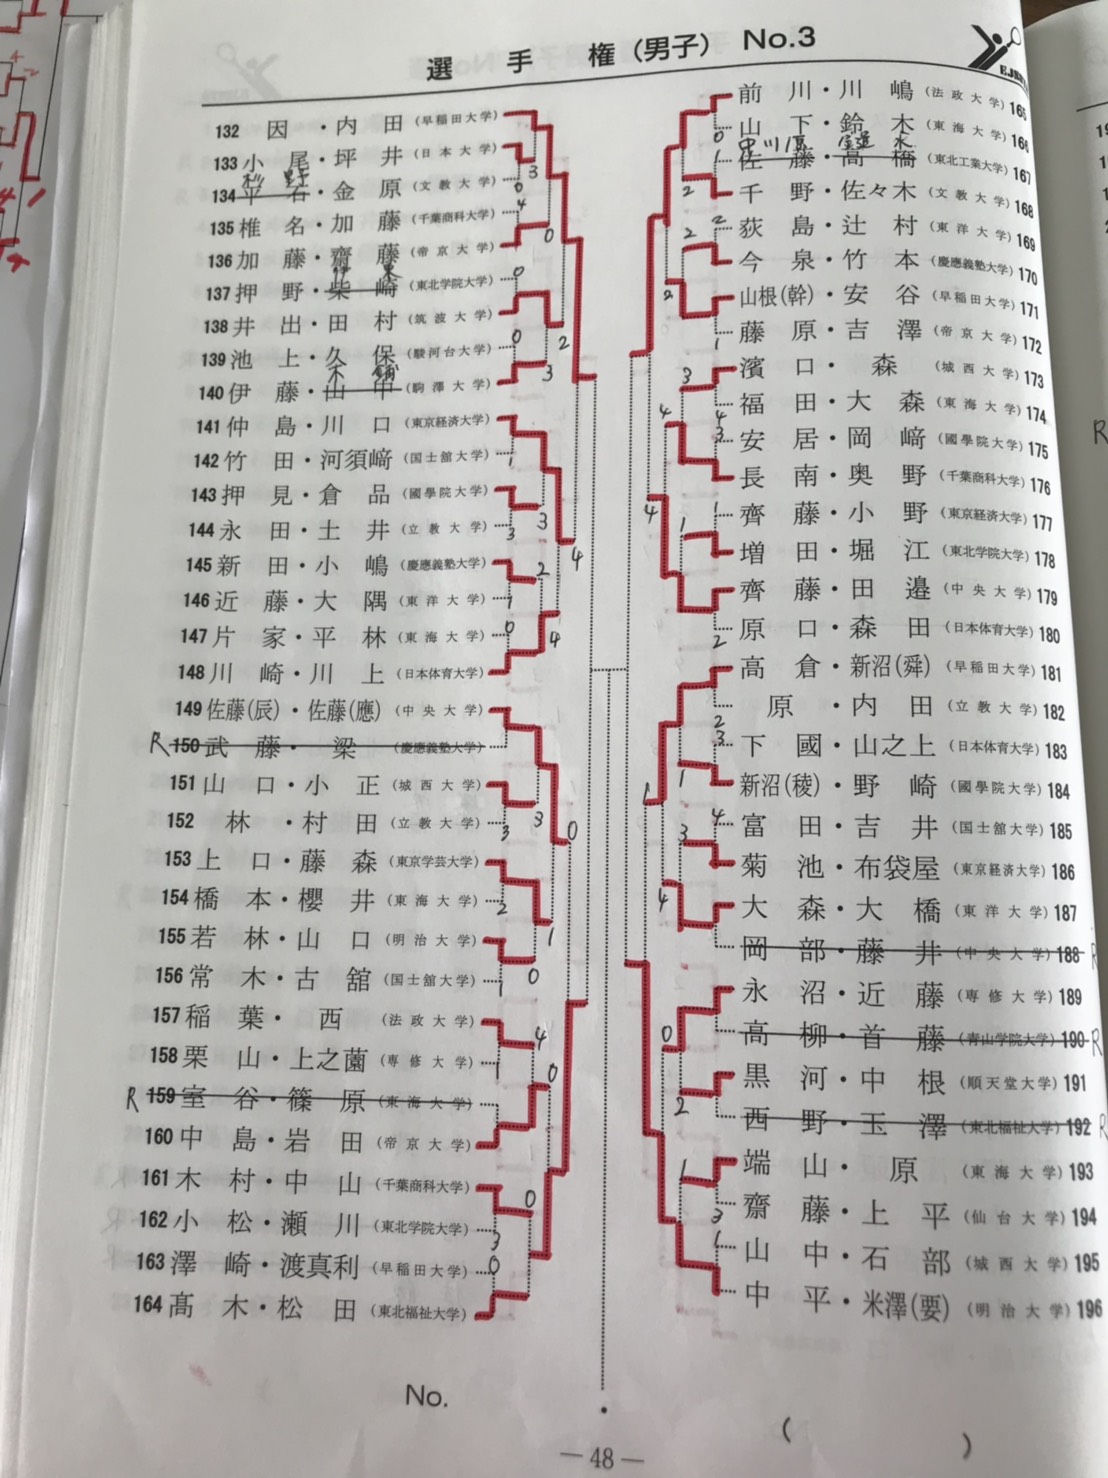 選手権（男子） No.3
132 因・内田（早稲田大学）
133 小尾・坪井（日本大学）
134 平石・金原（文教大学）
135 椎名・加藤（千葉商科大学）
136 加藤・齋藤（帝京大学）
137 押野・柴崎（東北学院大学）
138 井出・田村（筑波大学）
139 池上・久保（駿河台大学）
140 伊藤・山中（駒澤大学）
141 仲島・川口（東京経済大学）
142 竹田・河須﨑（国士舘大学）
143 押見・倉品（國學院大学）
144 永田・土井（立教大学）
145 新田・小嶋（慶應義塾大学）
146 近藤・大隅（東洋大学）
147 片家・平林（東海大学）
148 川崎・川上（日本体育大学）
149 佐藤(辰)・佐藤(應)（中央大学）
R 150 武藤・梁（慶應義塾大学）
151 山口・小正（城西大学）
152 林・村田（立教大学）
153 上口・藤森（東京学芸大学）
154 橋本・櫻井（東海大学）
155 若林・山口（明治大学）
156 常木・古舘（国士舘大学）
157 稲葉・西（法政大学）
158 栗山・上之薗（専修大学）
R 159 室谷・篠原（東海大学）
160 中島・岩田（帝京大学）
161 木村・中山（千葉商科大学）
162 小松・瀬川（東北学院大学）
163 澤崎・渡真利（早稲田大学）
164 髙木・松田（東北福祉大学）
前川・川嶋（法政大学）165
山下・鈴木（東海大学）166
佐藤・高橋（東北工業大学）167
千野・佐々木（文教大学）168
荻島・辻村（東洋大学）169
今泉・竹本（慶應義塾大学）170
山根(幹)・安谷（早稲田大学）171
藤原・吉澤（帝京大学）172
濱口・森（城西大学）173
福田・大森（東海大学）174
安居・岡﨑（國學院大学）175
長南・奥野（千葉商科大学）176
齊藤・小野（東京経済大学）177
増田・堀江（東北学院大学）178
齊藤・田邉（中央大学）179
原口・森田（日本体育大学）180
高倉・新沼(舜)（早稲田大学）181
原・内田（立教大学）182
下國・山之上（日本体育大学）183
新沼(稜)・野崎（國學院大学）184
富田・吉井（国士舘大学）185
菊池・布袋屋（東京経済大学）186
大森・大橋（東洋大学）187
岡部・藤井（中央大学）188
永沼・近藤（専修大学）189
高柳・首藤（青山学院大学）190
黒河・中根（順天堂大学）191
西野・玉澤（東北福祉大学）192
端山・原（東海大学）193
齋藤・上平（仙台大学）194
山中・石部（城西大学）195
中平・米澤(要)（明治大学）196
No.
（ ）
― 48 ―